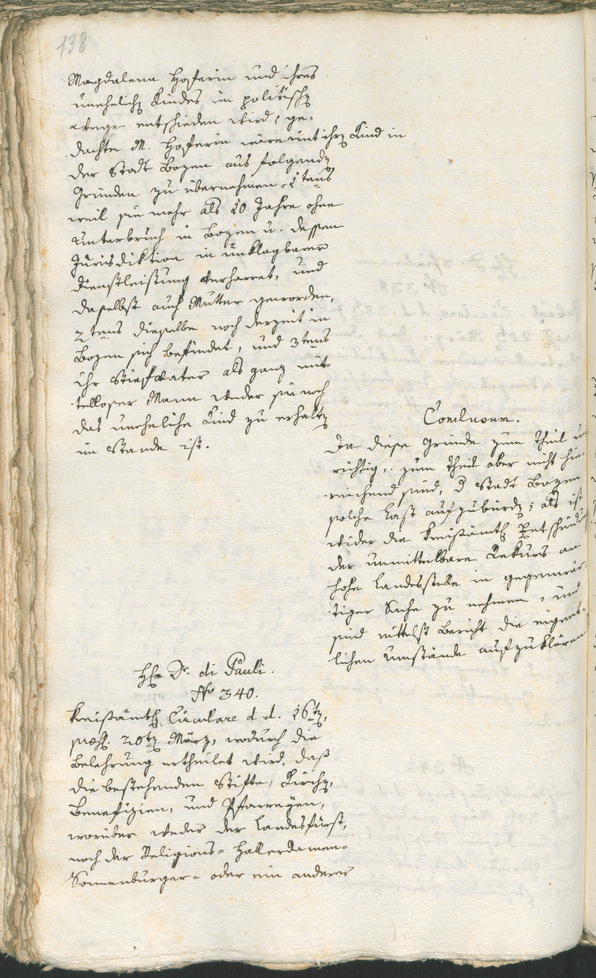 138
Magdalena Hoferin und ihres
unehelichen Kindes im politischen
Wege entschieden wird, ge-
dachte M. Hoferin wäre mit ihrem Kind in
der Stadt Bozen aus folgenden
Gründen zu übernehmen, 1tens
weil sie mehr als 10 Jahre ohne
Unterbruch in Bozen u. dessen
Jurisdiktion in unklagbarer
Dienstleistung verharret, und
daselbst auch Mutter geworden,
2tens dieselbe noch derzeit in
Bozen sich befindet, und 3tens
ihr Stiefvater als ganz mit-
telloser Mann weder sie noch
das uneheliche Kind zu erhalten
im Stande ist.
Conclusum.
Da diese Gründe zum Theil un-
richtig, zum Theil aber nicht hin-
reichend sind, d Stadt Bozen
solche Last aufzubürden; als ist
wider die kreisämtl. Entscheidung
der unmittelbare Rekurs an
hohe Landesstelle in gegenwär-
tiger Sache zu nehmen, und
sind mittelst Bericht die eigent-
lichen Umstände aufzuklären
H. Dr. di Pauli.
No 340.
Kreisämtl. Circulare d. d. 16ten,
praes. 20ten März, wodurch die
Belehrung ertheilet wird, daß
die bestehenden Stifte, Kirchen,
Benefizien, und Pfarreyen,
worüber weder der Landesfürst,
noch der Religions- Hallerdamen-
Sonnenburger- oder ein anderer